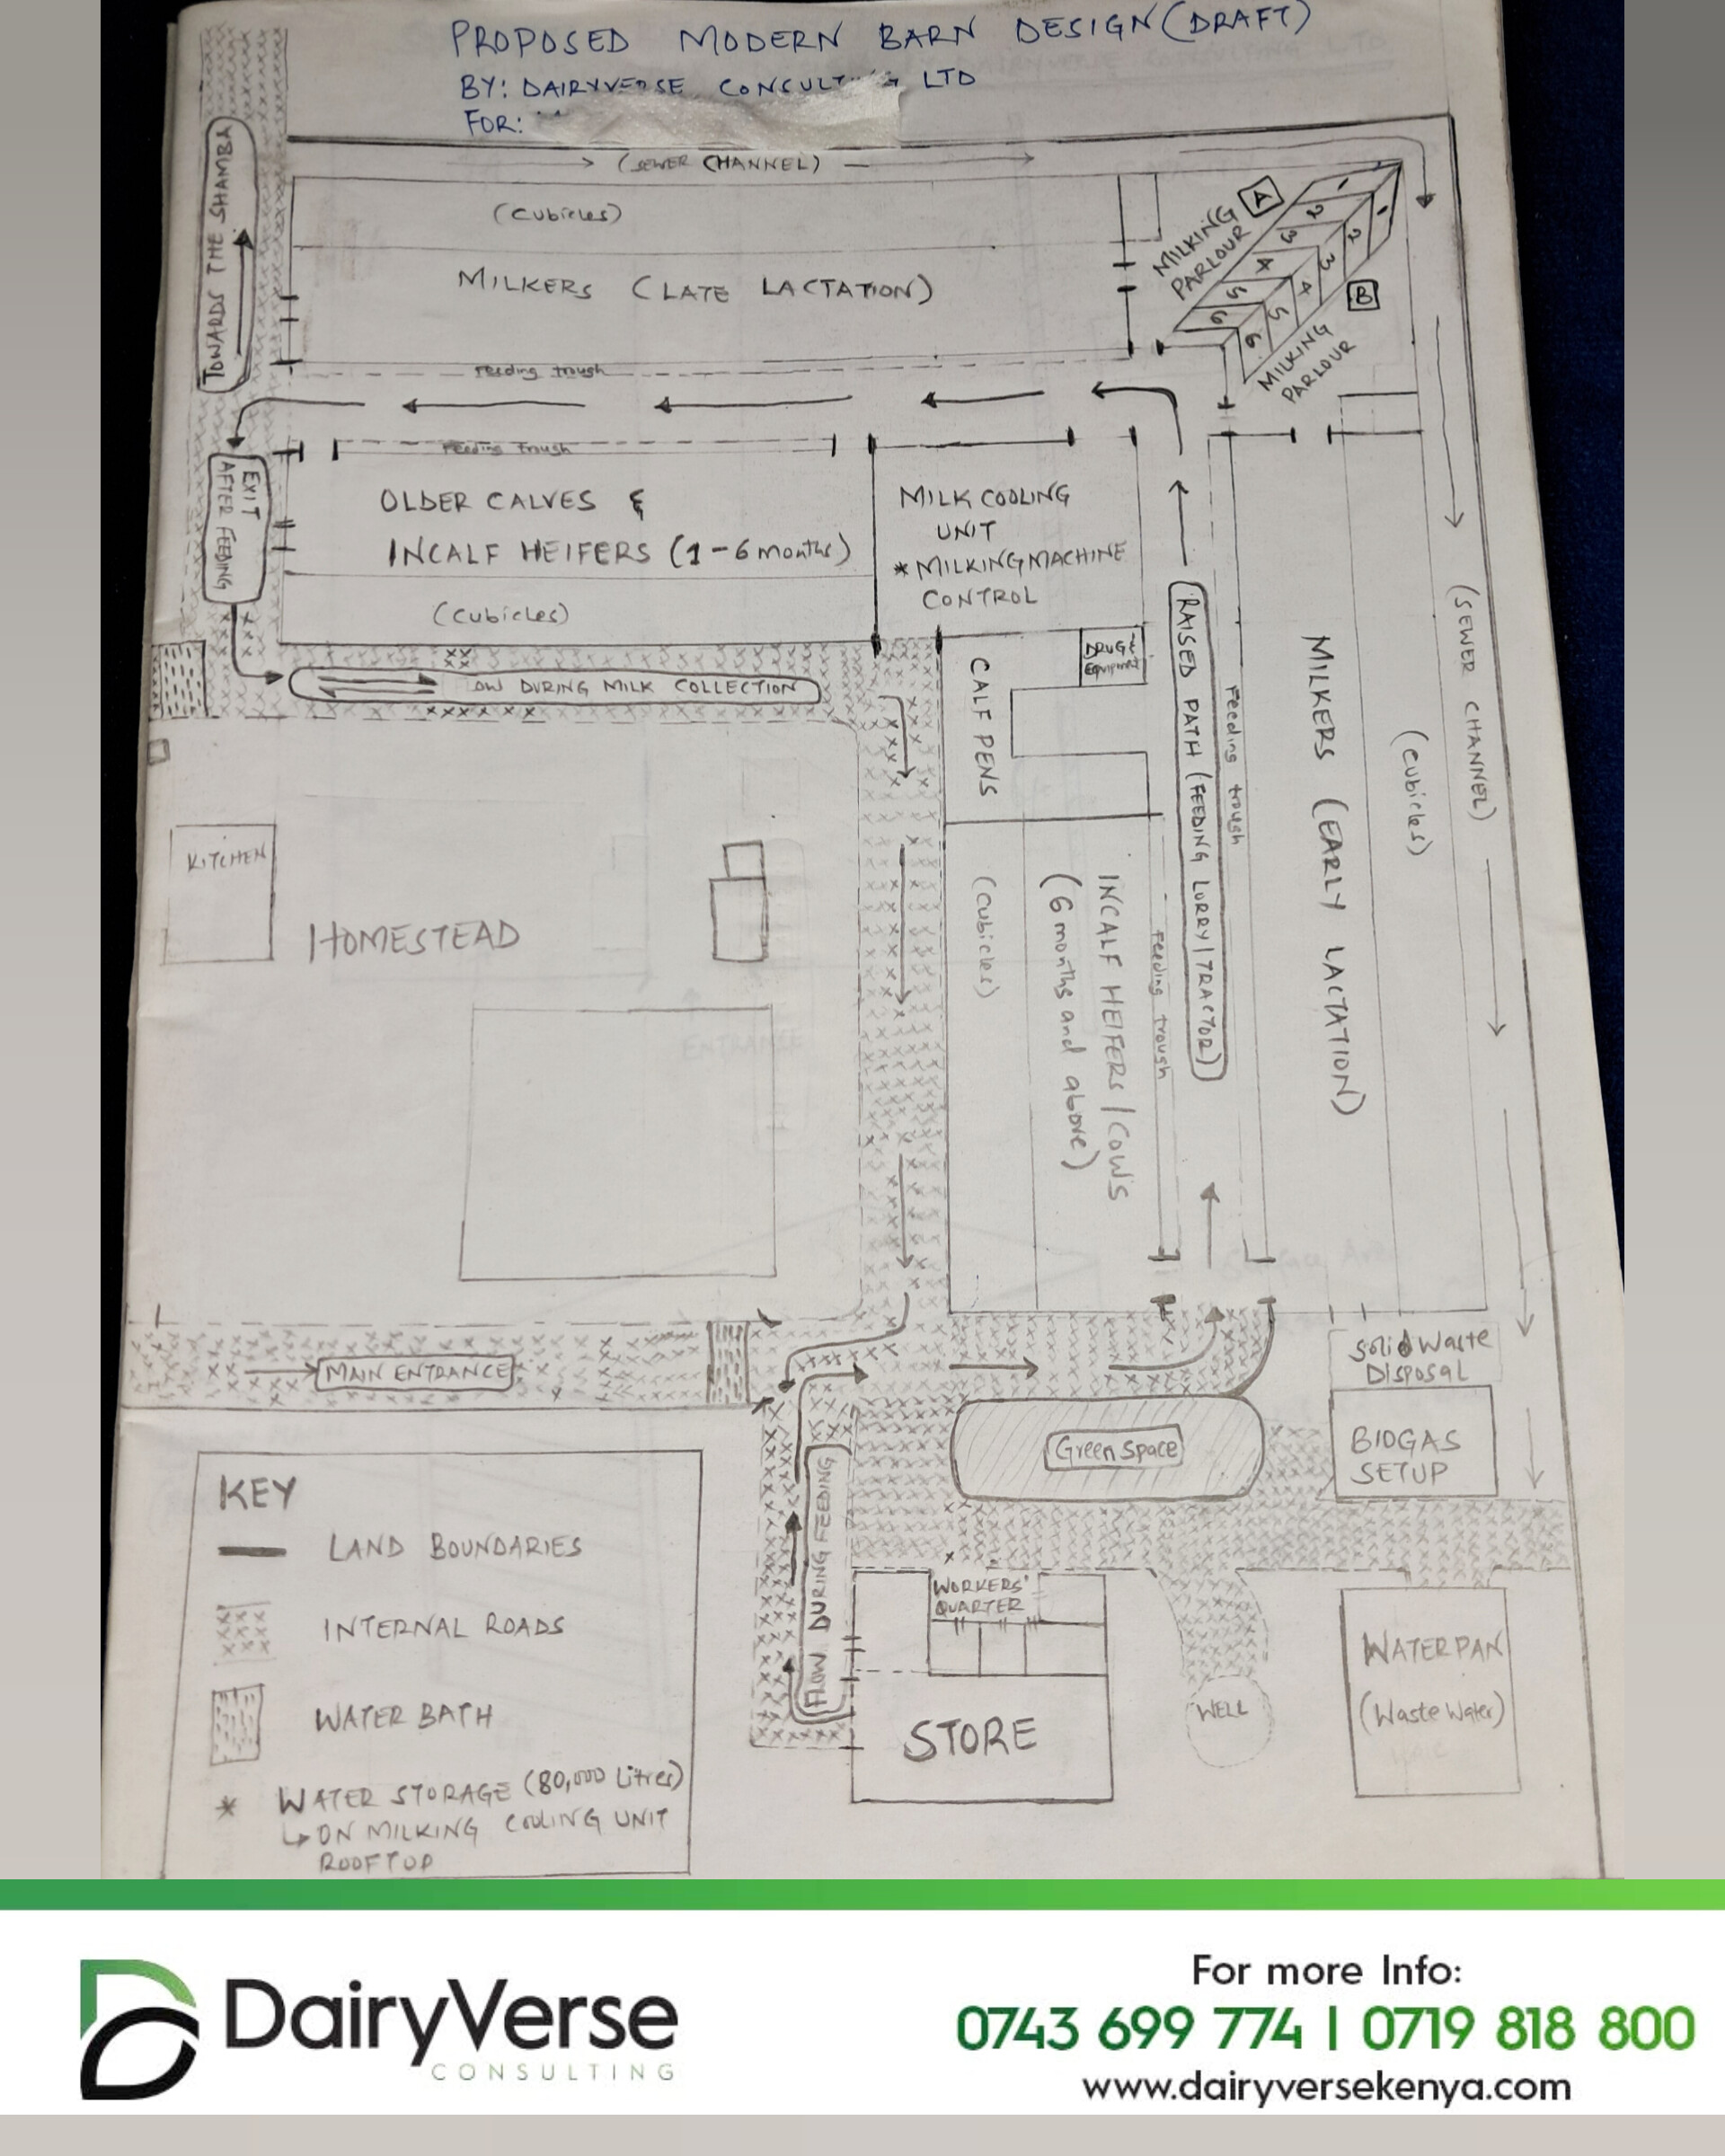 PROPOSED MODERN BARN DESIGN (DRAFT)
BY: DAIRYVERSE CONSULTING LTD
FOR:
(SEWER CHANNEL)
TOWARDS THE SHAMBA
(Cubicles)
MILKERS (LATE LACTATION)
Feeding trough
MILKING
PARLOUR
A
1
2
3
4
5
6
1
2
3
4
5
6
B
MILKING
PARLOUR
Feeding trough
EXIT
AFTER FEEDING
OLDER CALVES &
INCALF HEIFERS (1-6 months)
(Cubicles)
MILK COOLING
UNIT
* MILKING MACHINE
CONTROL
DRUG &
Equipment
CALF PENS
RAISED PATH (FEEDING LORRY/TRACTOR)
Feeding trough
MILKERS (EARLY LACTATION)
(Cubicles)
(SEWER CHANNEL)
OW DURING MILK COLLECTION
KITCHEN
HOMESTEAD
(Cubicles)
INCALF HEIFERS / COWS
(6 months and above)
Feeding trough
ENTRANCE
MAIN ENTRANCE
Solid Waste
Disposal
BIOGAS
SETUP
Green Space
FLOW DURING FEEDING
WORKERS'
QUARTER
STORE
WELL
WATER PAN
(Waste Water)
KEY
LAND BOUNDARIES
INTERNAL ROADS
WATER BATH
* WATER STORAGE (80,000 Litres)
↳ ON MILKING COOLING UNIT
ROOFTOP
DairyVerse
CONSULTING
For more Info:
0743 699 774 | 0719 818 800
www.dairyversekenya.com